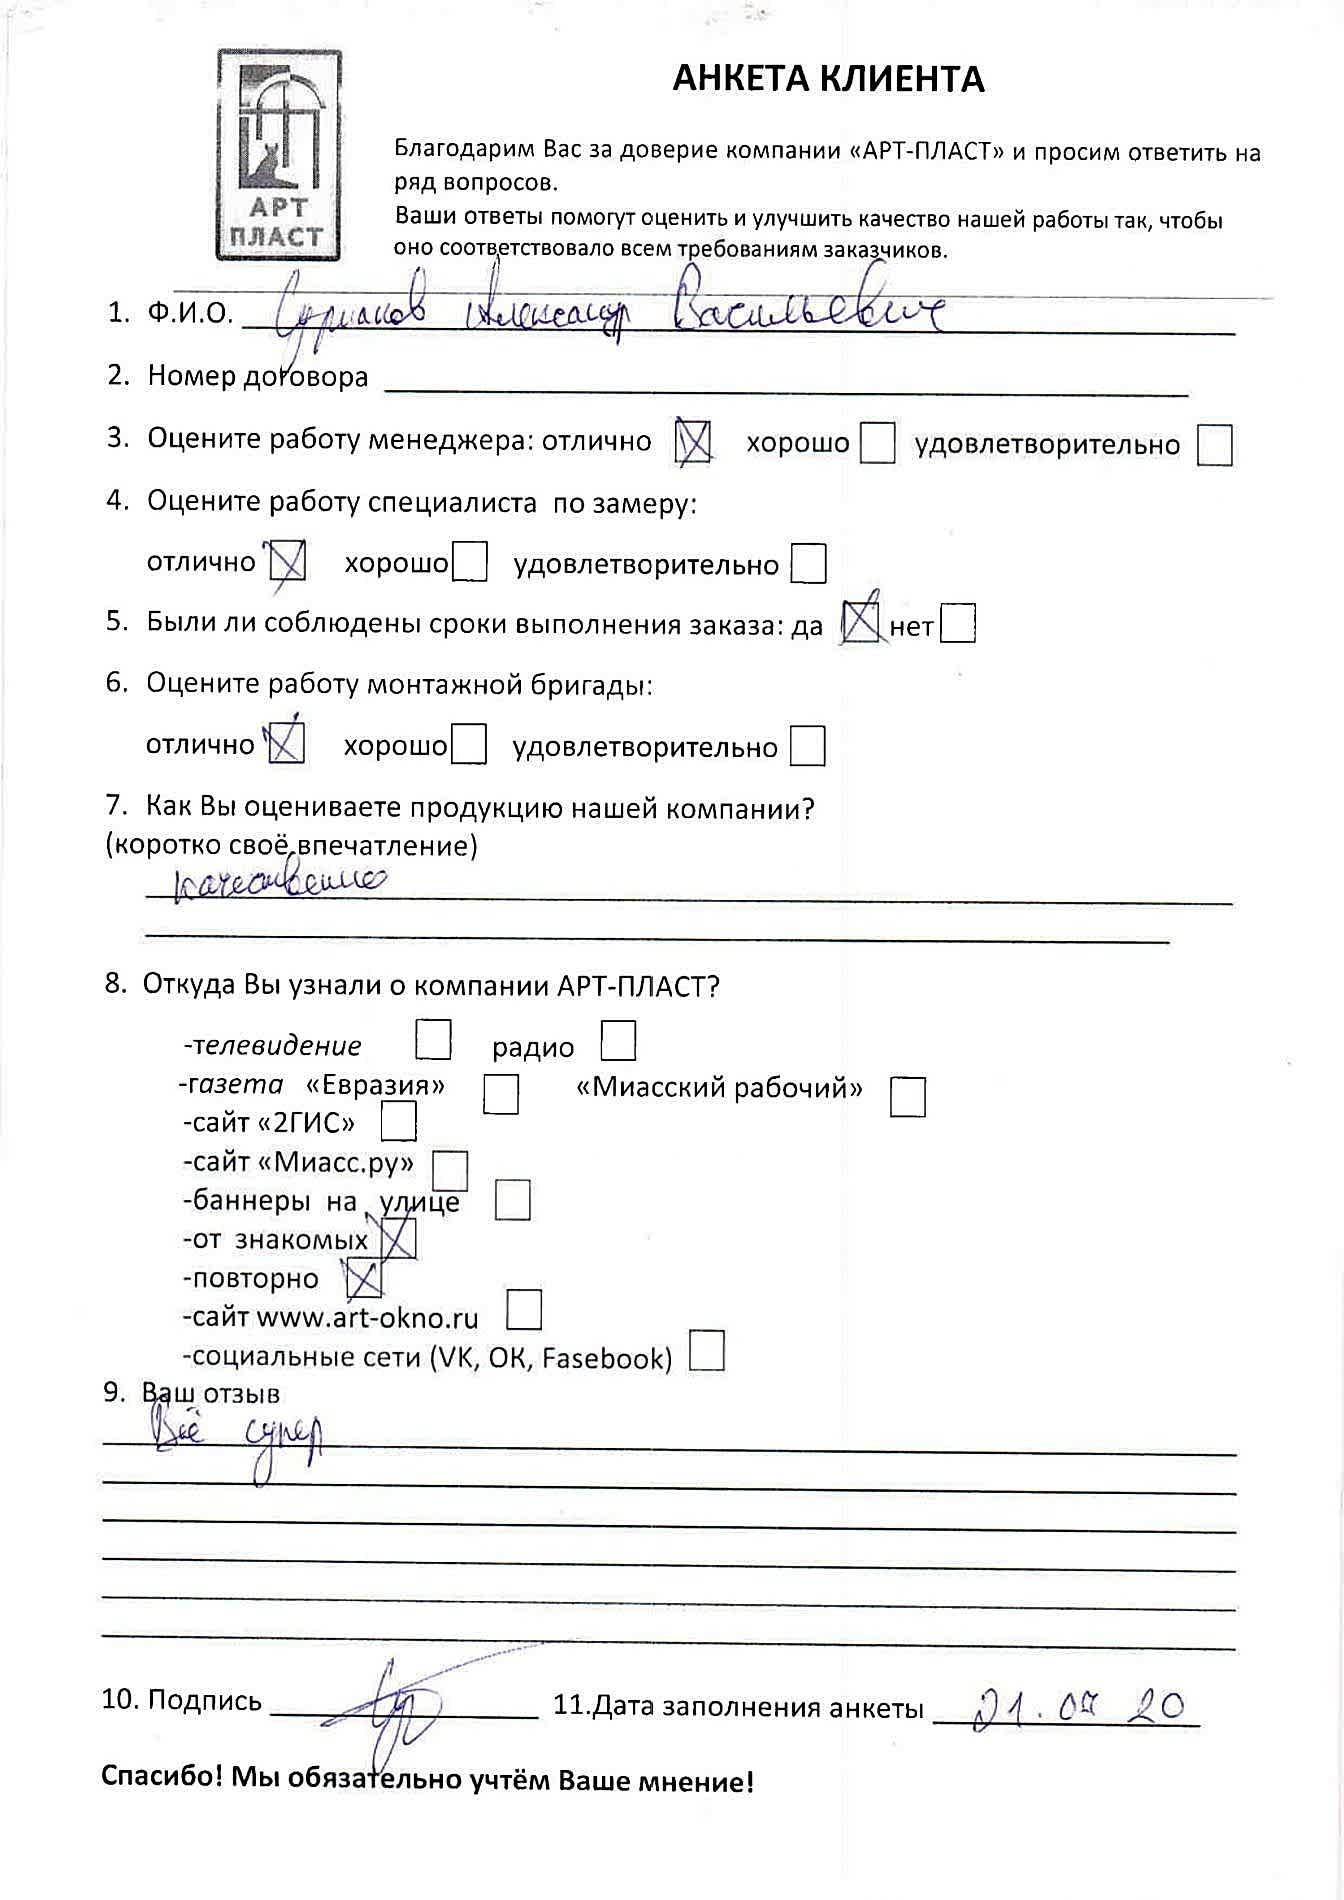 АРТ
ПЛАСТ
АНКЕТА КЛИЕНТА
Благодарим Вас за доверие компании «АРТ-ПЛАСТ» и просим ответить на
ряд вопросов.
Ваши ответы помогут оценить и улучшить качество нашей работы так, чтобы
оно соответствовало всем требованиям заказчиков.
1. Ф.И.О. Александр Васильевич
2. Номер договора
3. Оцените работу менеджера: отлично хорошо удовлетворительно
4. Оцените работу специалиста по замеру:
отлично хорошо удовлетворительно
5. Были ли соблюдены сроки выполнения заказа: да нет
6. Оцените работу монтажной бригады:
отлично хорошо удовлетворительно
7. Как Вы оцениваете продукцию нашей компании?
(коротко своё впечатление)
качественно
8. Откуда Вы узнали о компании АРТ-ПЛАСТ?
-телевидение радио
-газета «Евразия» «Миасский рабочий»
-сайт «2ГИС»
-сайт «Миасс.ру»
-баннеры на улице
-от знакомых
-повторно
-сайт www.art-okno.ru
-социальные сети (VK, ОК, Fasebook)
9. Ваш отзыв
Всё супер
10. Подпись 11.Дата заполнения анкеты 21.07 20
Спасибо! Мы обязательно учтём Ваше мнение!